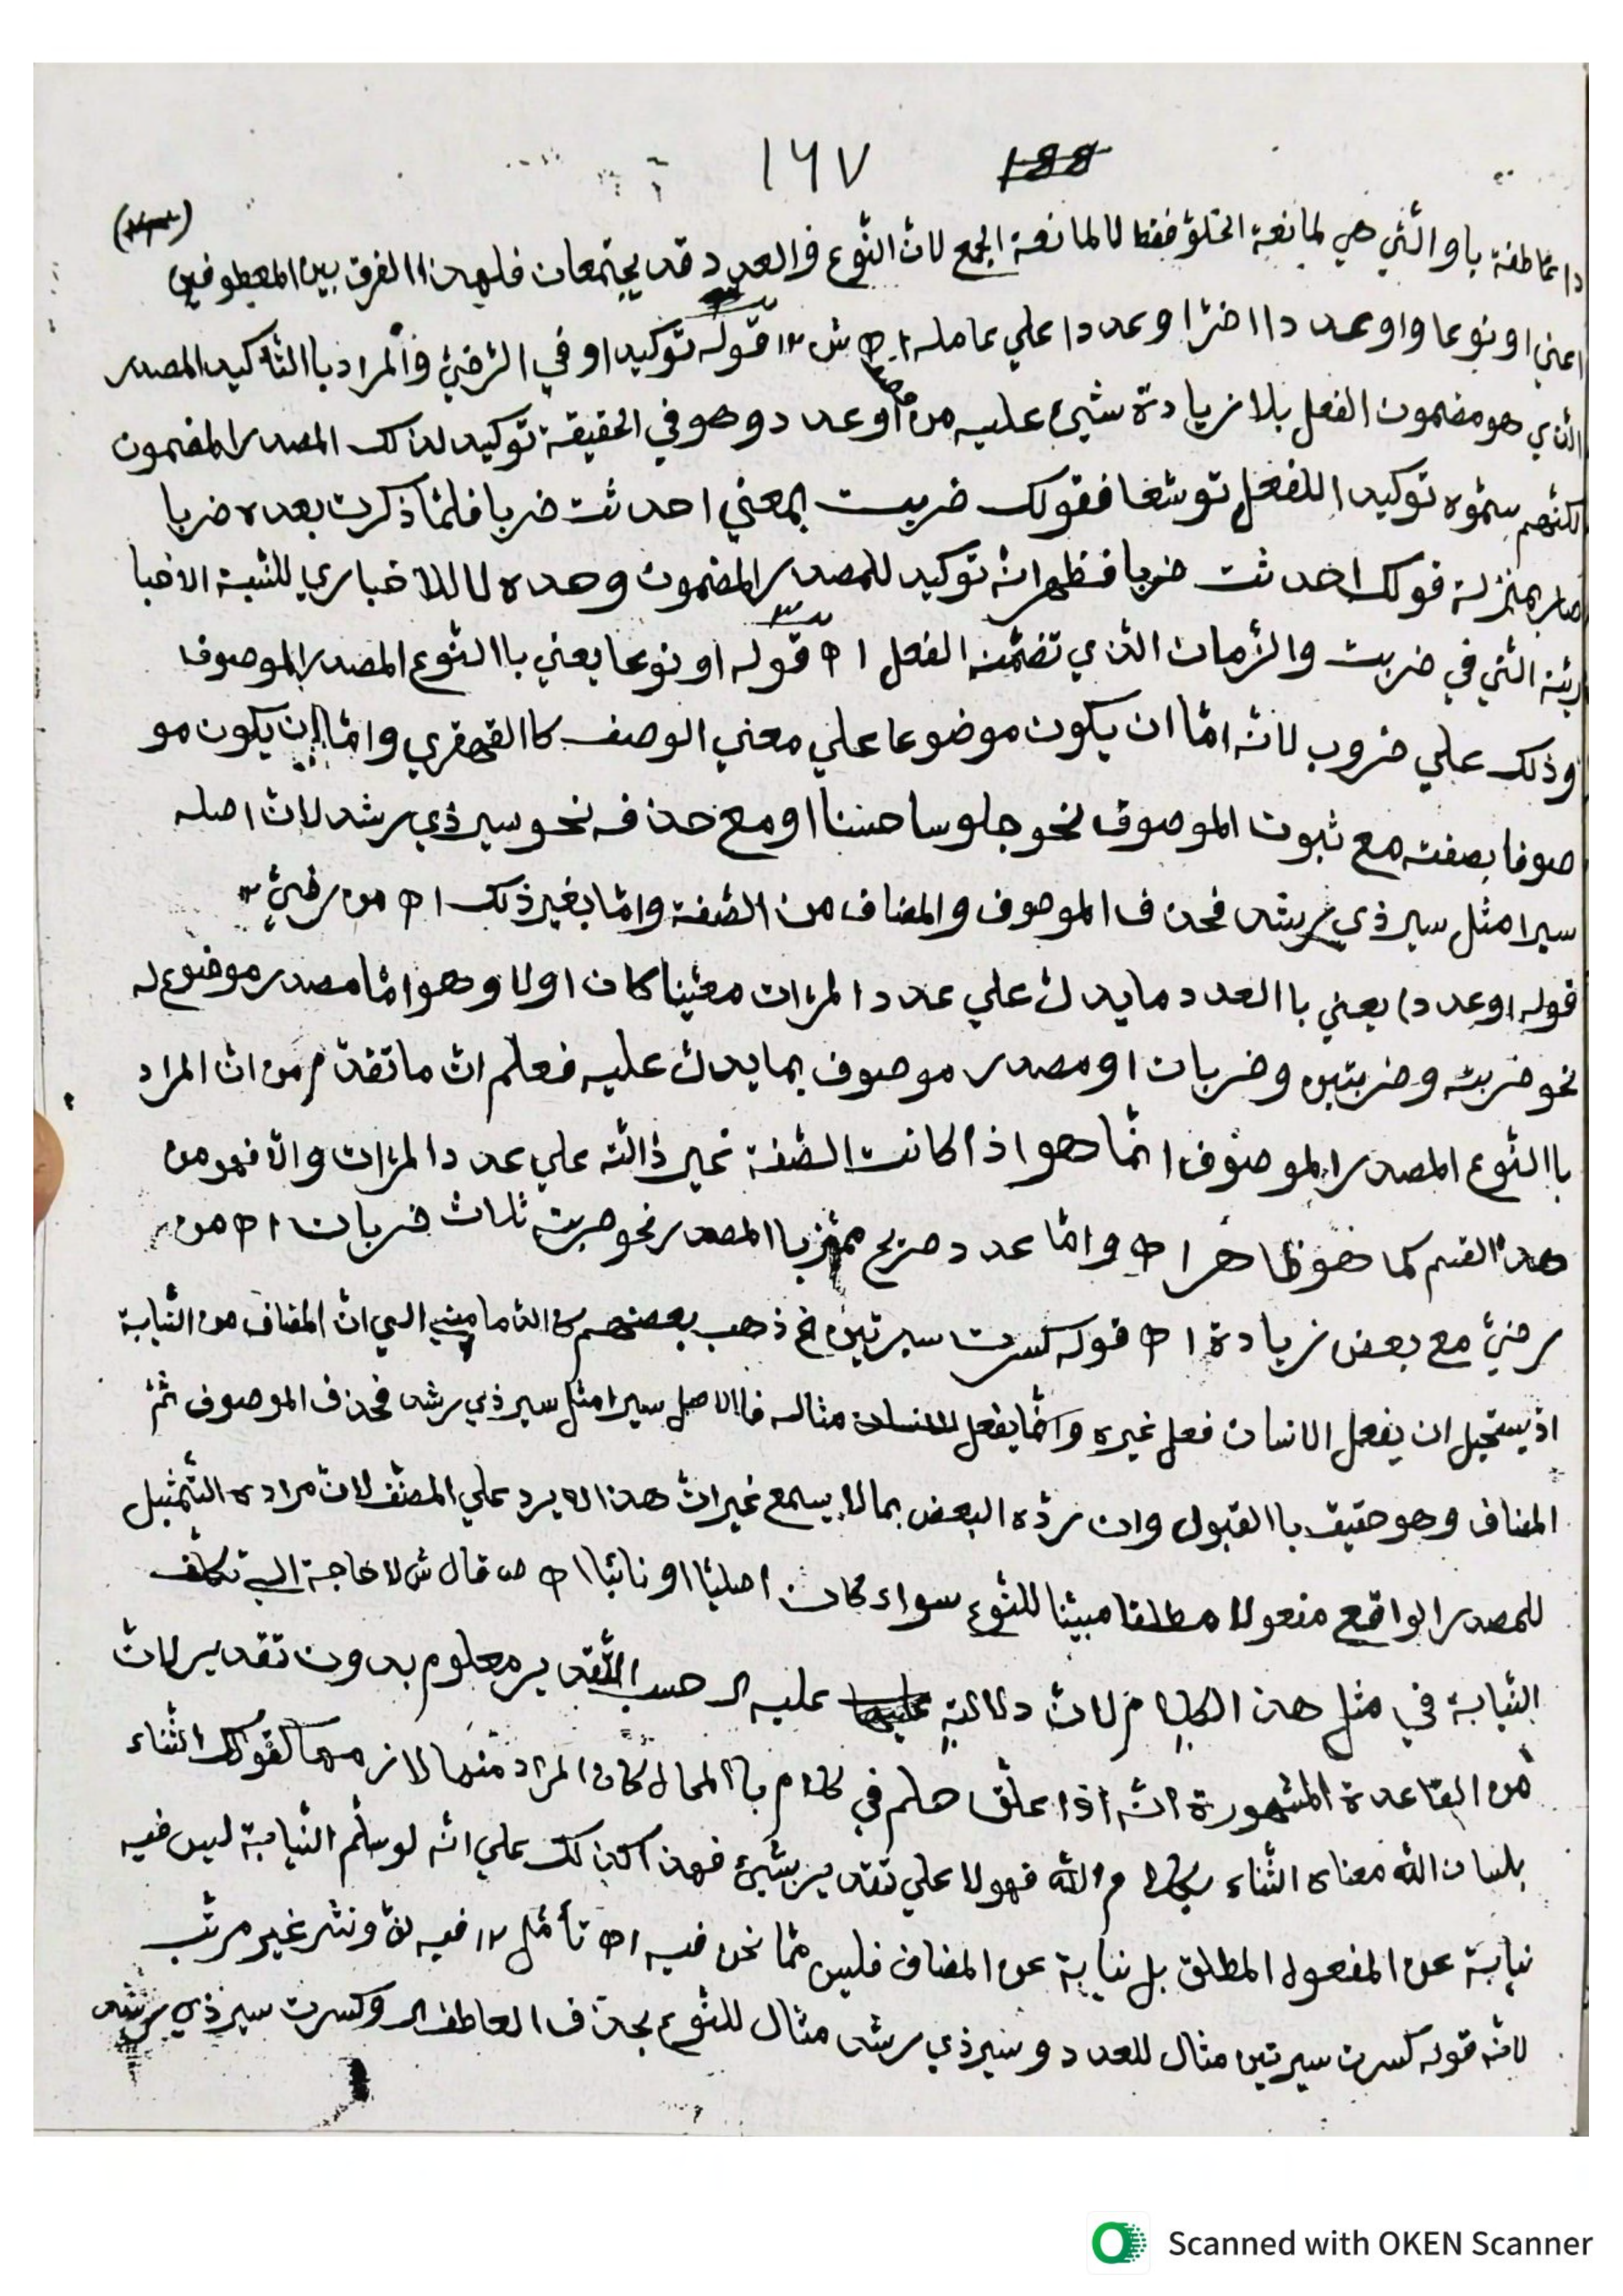 ١٦٧
داعاطفة باو الّتي هي لمانعة الخلوّ فقط لا لمانعة الجمع لانّ النّوع والعدد قد يجتمعان فلهذا الفرق بين المعطوفين
اعني او نوعا واو عددا اخّرا وعددا علي عامله اه ش ١٢ قوله توكيدا وفي الرّضيّ والمراد باالتّاكيد المصدر
الّذي هو مضمون الفعل بلا زيادة شيئ عليه من وصف او عدد وهو في الحقيقة توكيد لذلك المصدر المضمون
لكنّهم سمّوه توكيدا للفعل توسّعا فقولك ضربت بمعني احدثت ضربا فلمّا ذكرت بعده ضربا
صار بمنزلة قولك احدثت ضربا فظهر انّه توكيد للمصدر المضمون وحده لا للاخباري للنّسبة الاخبا
ريّة الّتي في ضربت والزّمان الّذي تضمّنه الفعل اه قوله او نوعا يعني باالنّوع المصدر الموصوف
وذلك علي ضروب لانّه امّا ان يكون موضوعا علي معني الوصف كاالقهقري وامّا ان يكون مو
صوفا بصفته مع ثبوت الموصوف نحو جلوسا حسنا او مع حذفه نحو سير ذي رشد لانّ اصله
سيرا مثل سير ذي رشد فحذف الموصوف والمضاف من الصّفة وامّا بغير ذلك اه من رضيّ ١٢
قوله او عددا يعني باالعدد ما يدلّ علي عدد المرّات معيّنا كان اولا وهو امّا مصدر موضوع له
نحو ضربة وضربتين وضربات او مصدر موصوف بما يدلّ عليه فعلم انّ ما تقدّم من انّ المراد
باالنّوع المصدر الموصوف انّما هو اذا كانت الصّفة غير دالّة علي عدد المرّات والّا فهو من
هذا القسم كما هو ظاهر اه وامّا عدد صريح مميّز باالمصدر نحو ضربته ثلاث ضربات اه من
رضيّ مع بعض زيادة اه قوله كسرت سيرتين الخ ذهب بعضهم كالدّماميني الي انّ المضاف من النّيابة
اذ يستحيل ان يفعل الانسان فعل غيره وانّما يفعل مثاله فاالاصل سيرا مثل سير ذي رشد فحذف الموصوف ثمّ
المضاف وهو حقيق باالقبول وان ردّه البعض بما لا يسمع غير انّ هذا لا يرد علي المصنّف لانّ مراده التّمثيل
للمصدر الواقع مفعولا مطلقا مبيّنا للنّوع سواء كان اصليّا او نائبا اه ص قال ش لا حاجة الي تكلّف
النّيابة في مثل هذا الكلام لانّ دلالته عليه الـ حسب التّقدير معلوم بدون تقدير لانّ
من القاعدة المشهورة انّه اذا علّق حكم في كلام باالمحال كان المراد منها لازمهما كقولك الثّناء
بلسان الله معناه الثّناء بكلام الله فهو لا علي تقدير شيئ فهذا كذلك علي انّه لو سلّم النّيابة ليس فيه
نيابة عن المفعول المطلق بل نيابة عن المضاف فليس ممّا نحن فيه اه تأمّل ١٢ فيه لفّ ونشر غير مرتّب
لانّه قوله كسرت سيرتين مثال للعدد وسير ذي رشد مثال للنّوع بحذف العاطف الـ وكسرت سير ذي رشد
Scanned with OKEN Scanner